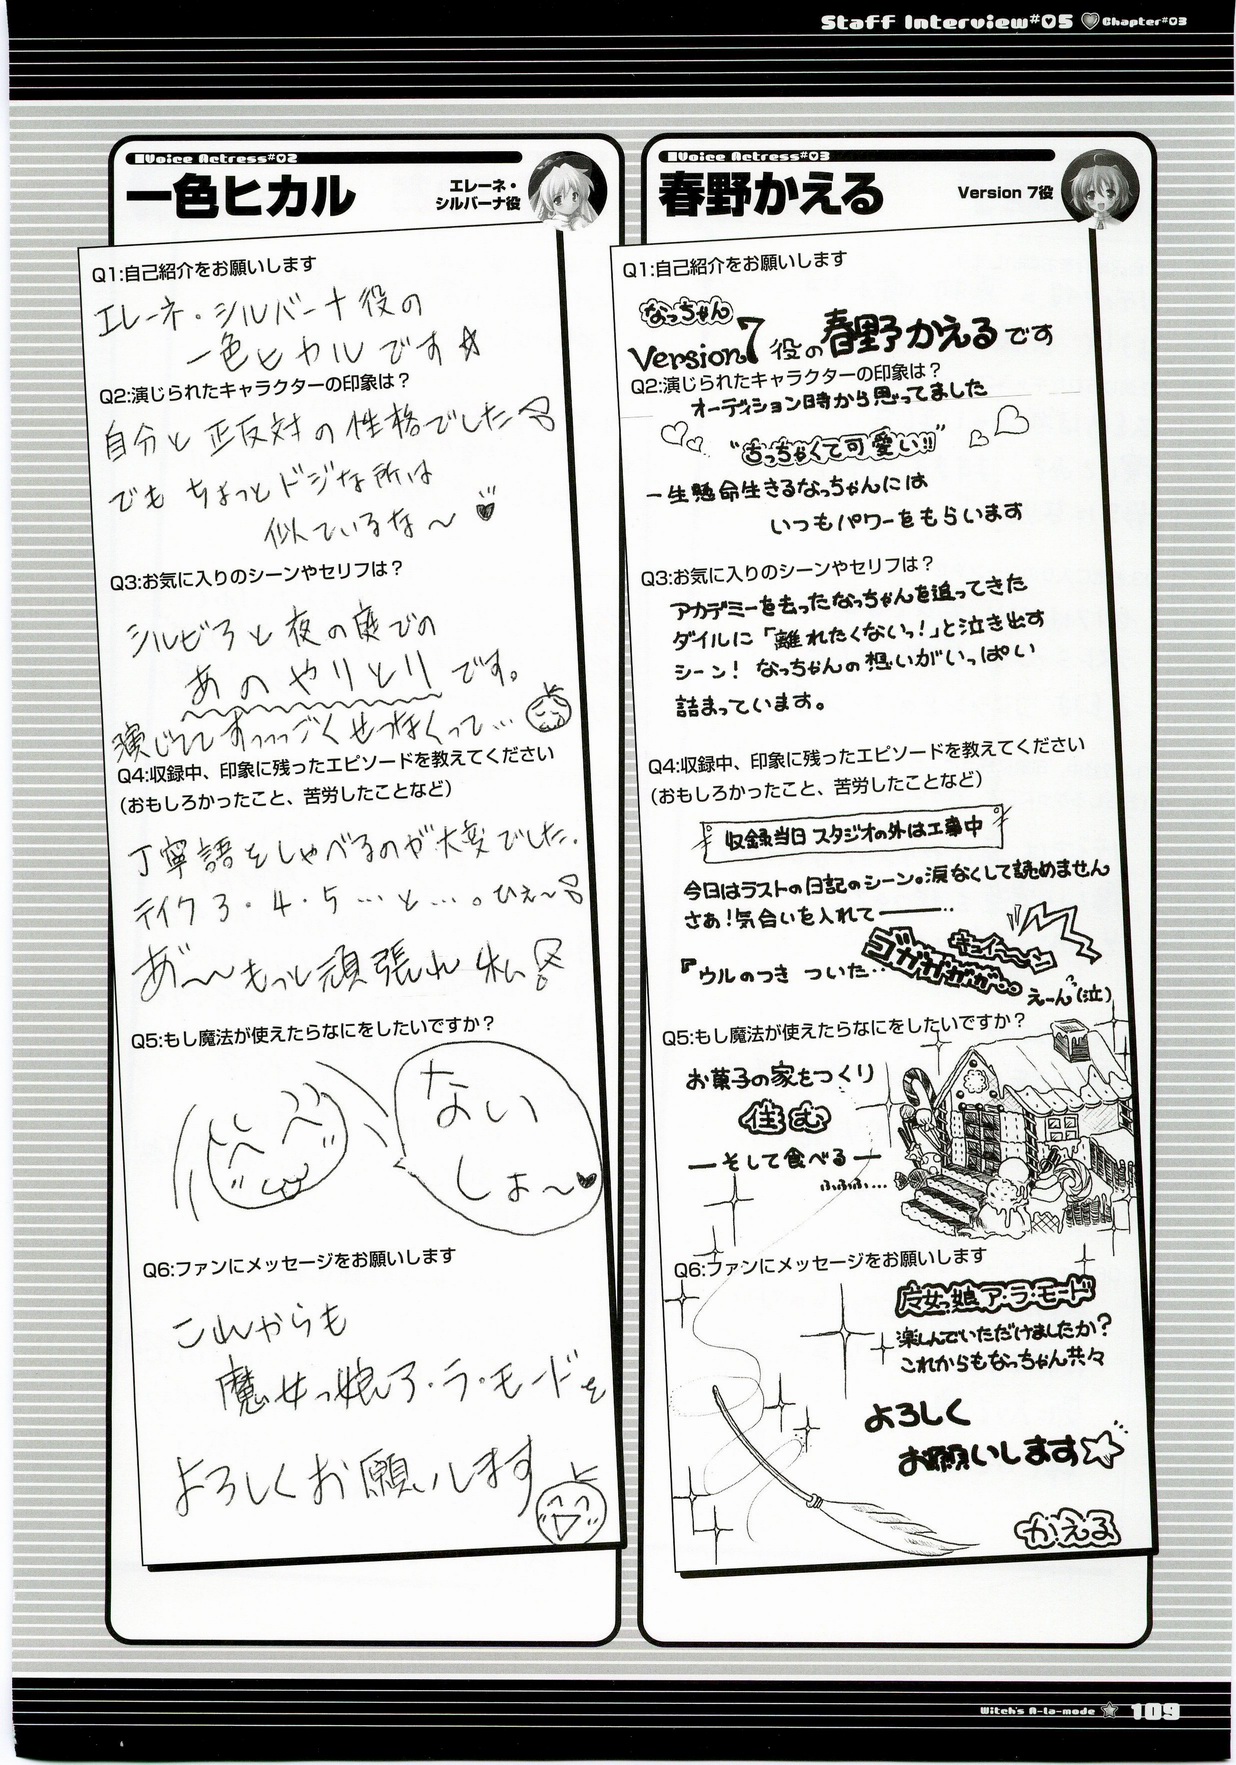 Staff Interview#05 Chapter#03
Voice Actress#02
一色ヒカル
エレーネ・
シルバーナ役
Q1:自己紹介をお願いします
エレーネ・シルバーナ役の
一色ヒカルです☆
Q2:演じられたキャラクターの印象は？
自分と正反対の性格でした
でもちょっとドジな所は
似ているな～
Q3:お気に入りのシーンやセリフは？
シルビアと夜の庭での
あのやりとりです。
演じててすっっっごくせつなくって…
Q4:収録中、印象に残ったエピソードを教えてください
（おもしろかったこと、苦労したことなど）
丁寧語をしゃべるのが大変でした.
テイク3・4・5…と…。ひぇ～
あ゛～～もっと頑張れ私い
Q5:もし魔法が使えたらなにをしたいですか？
ない
しょ～♥
Q6:ファンにメッセージをお願いします
これからも
魔女っ娘ア・ラ・モードを
よろしくお願いします
Voice Actress#03
春野かえる
Version 7役
Q1:自己紹介をお願いします
なっちゃん
Version7役の春野かえるです
Q2:演じられたキャラクターの印象は？
オーディション時から思ってました
"ちっちゃくて可愛い!!"
一生懸命生きるなっちゃんには
いつもパワーをもらいます
Q3:お気に入りのシーンやセリフは？
アカデミーを去ったなっちゃんを追ってきた
ダイルに「離れたくないっ！」と泣き出す
シーン！なっちゃんの想いがいっぱい
詰まっています。
Q4:収録中、印象に残ったエピソードを教えてください
（おもしろかったこと、苦労したことなど）
収録当日 スタジオの外は工事中
今日はラストの日記のシーン。涙なくして読めません
さあ！気合いを入れて――…
『ウルのつき ついた…
キュイーン
ゴガガガガ…
えーん(泣)
Q5:もし魔法が使えたらなにをしたいですか？
お菓子の家をつくり
住む
―そして食べる―
ふふふ…
Q6:ファンにメッセージをお願いします
魔女っ娘ア・ラ・モード
楽しんでいただけましたか？
これからもなっちゃん共々
よろしく
お願いします☆
かえる
Witch's A-la-mode ☆ 109